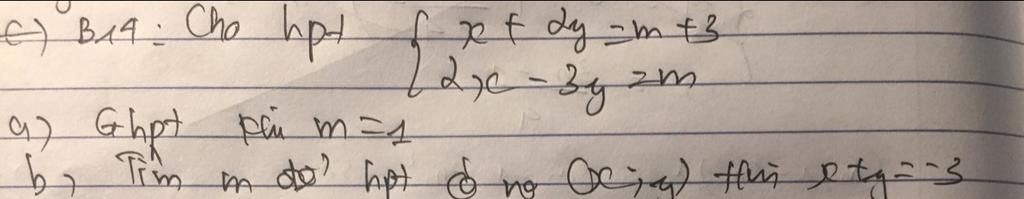 c) B14: Cho hpt { x + 2y = m + 3
2x - 3y = m
a) Ghpt khi m = 1
b, Tìm m để hpt có no (x; y) thỏa x + y = -3